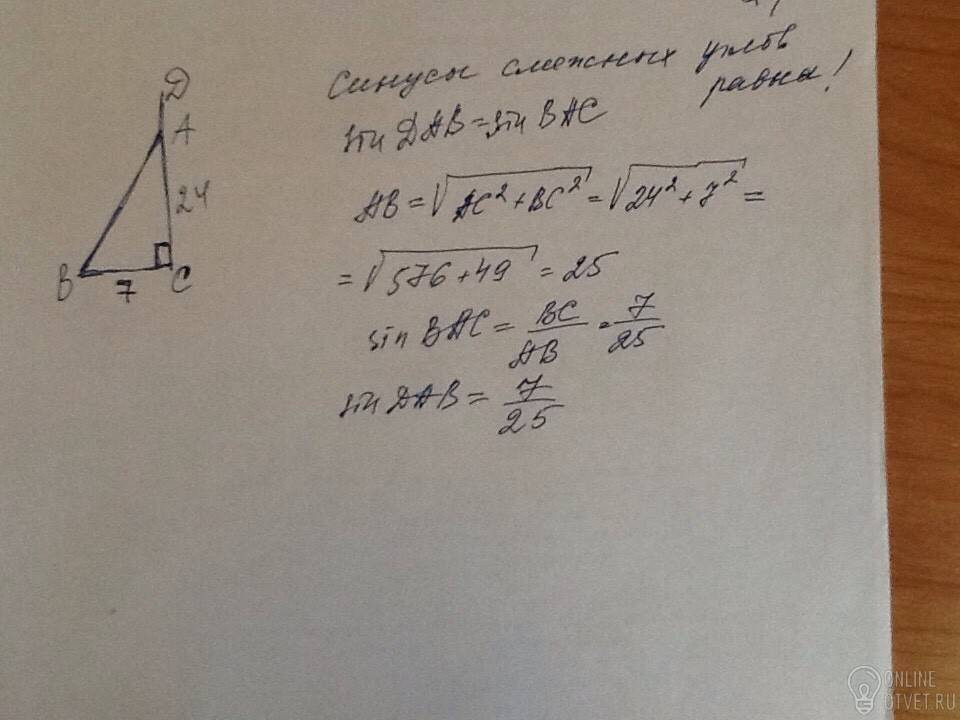 D
A
24
B
7
C
Синусы смежных углов
равна!
sin DAB = sin BAC
AB = √AC² + BC² = √24² + 7² =
= √576 + 49 = 25
sin BAC = BC/AB = 7/25
sin DAB = 7/25
ONLINE
OTVET.RU